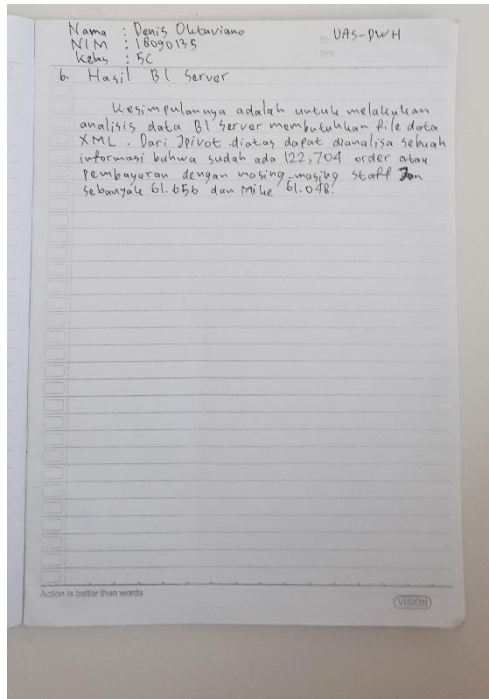 Nama : Denis Oktaviano
UAS-DWH
NIM : 18090135
Kelas : 5C
6. Hasil BI Server
Kesimpulannya adalah untuk melakukan
analisis data BI Server membutuhkan file data
XML. Dari Jpivot diatas dapat dianalisa sebuah
informasi bahwa sudah ada 122,704 order atau
pembayaran dengan masing-masing staff Jon
sebanyak 61.656 dan Mike 61.048.
Action is better than words
VISION